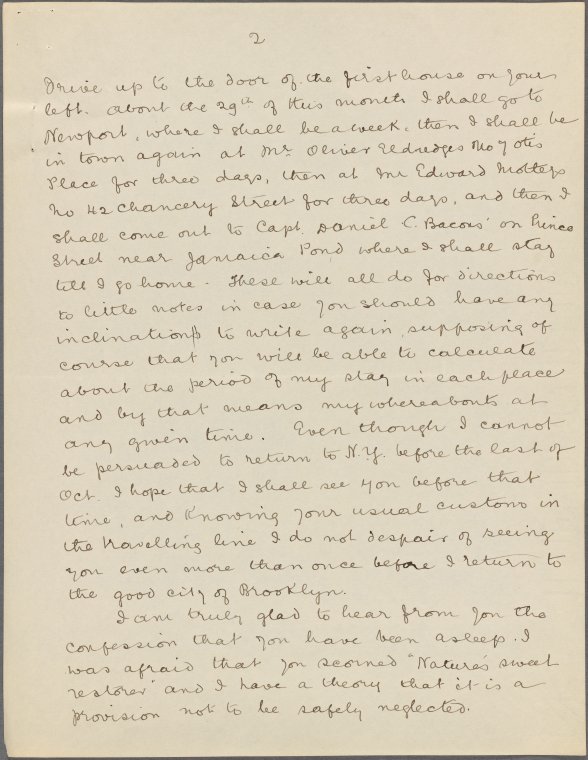 2
Drive up to the door of the first house on your
left. About the 29th of this month I shall go to
Newport, where I shall be a week, then I shall be
in town again at Mr. Oliver Eldredges No 7 Otis
Place for three days, then at Mr Edward Motleys
No 42 Chancery Street for three days, and then I
shall come out to Capt. Daniel C. Bacons' on Prince
Street near Jamaica Pond where I shall stay
till I go home - These will all do for directions
to little notes in case you should have any
inclinations to write again, supposing of
course that you will be able to calculate
about the period of my stay in each place
and by that means my whereabouts at
any given time. Even though I cannot
be persuaded to return to N.Y. before the last of
Oct. I hope that I shall see you before that
time, and knowing your usual customs in
the travelling line I do not despair of seeing
you even more than once before I return to
the good city of Brooklyn.
I am truly glad to hear from you the
confession that you have been asleep. I
was afraid that you scorned "Nature's sweet
restorer" and I have a theory that it is a
provision not to be safely neglected.